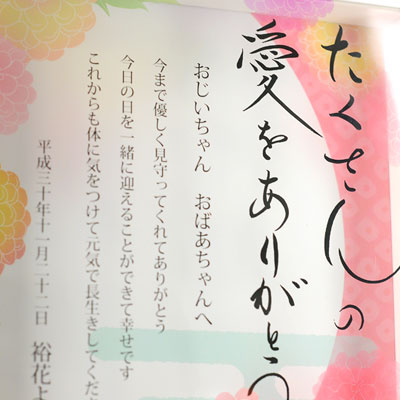 たくさんの
愛をありがとう
おじいちゃん おばあちゃんへ
今まで優しく見守ってくれてありがとう
今日の日を一緒に迎えることができて幸せです
これからも体に気をつけて元気で長生きしてくだ
平成三十年十一月二十二日 裕花よ